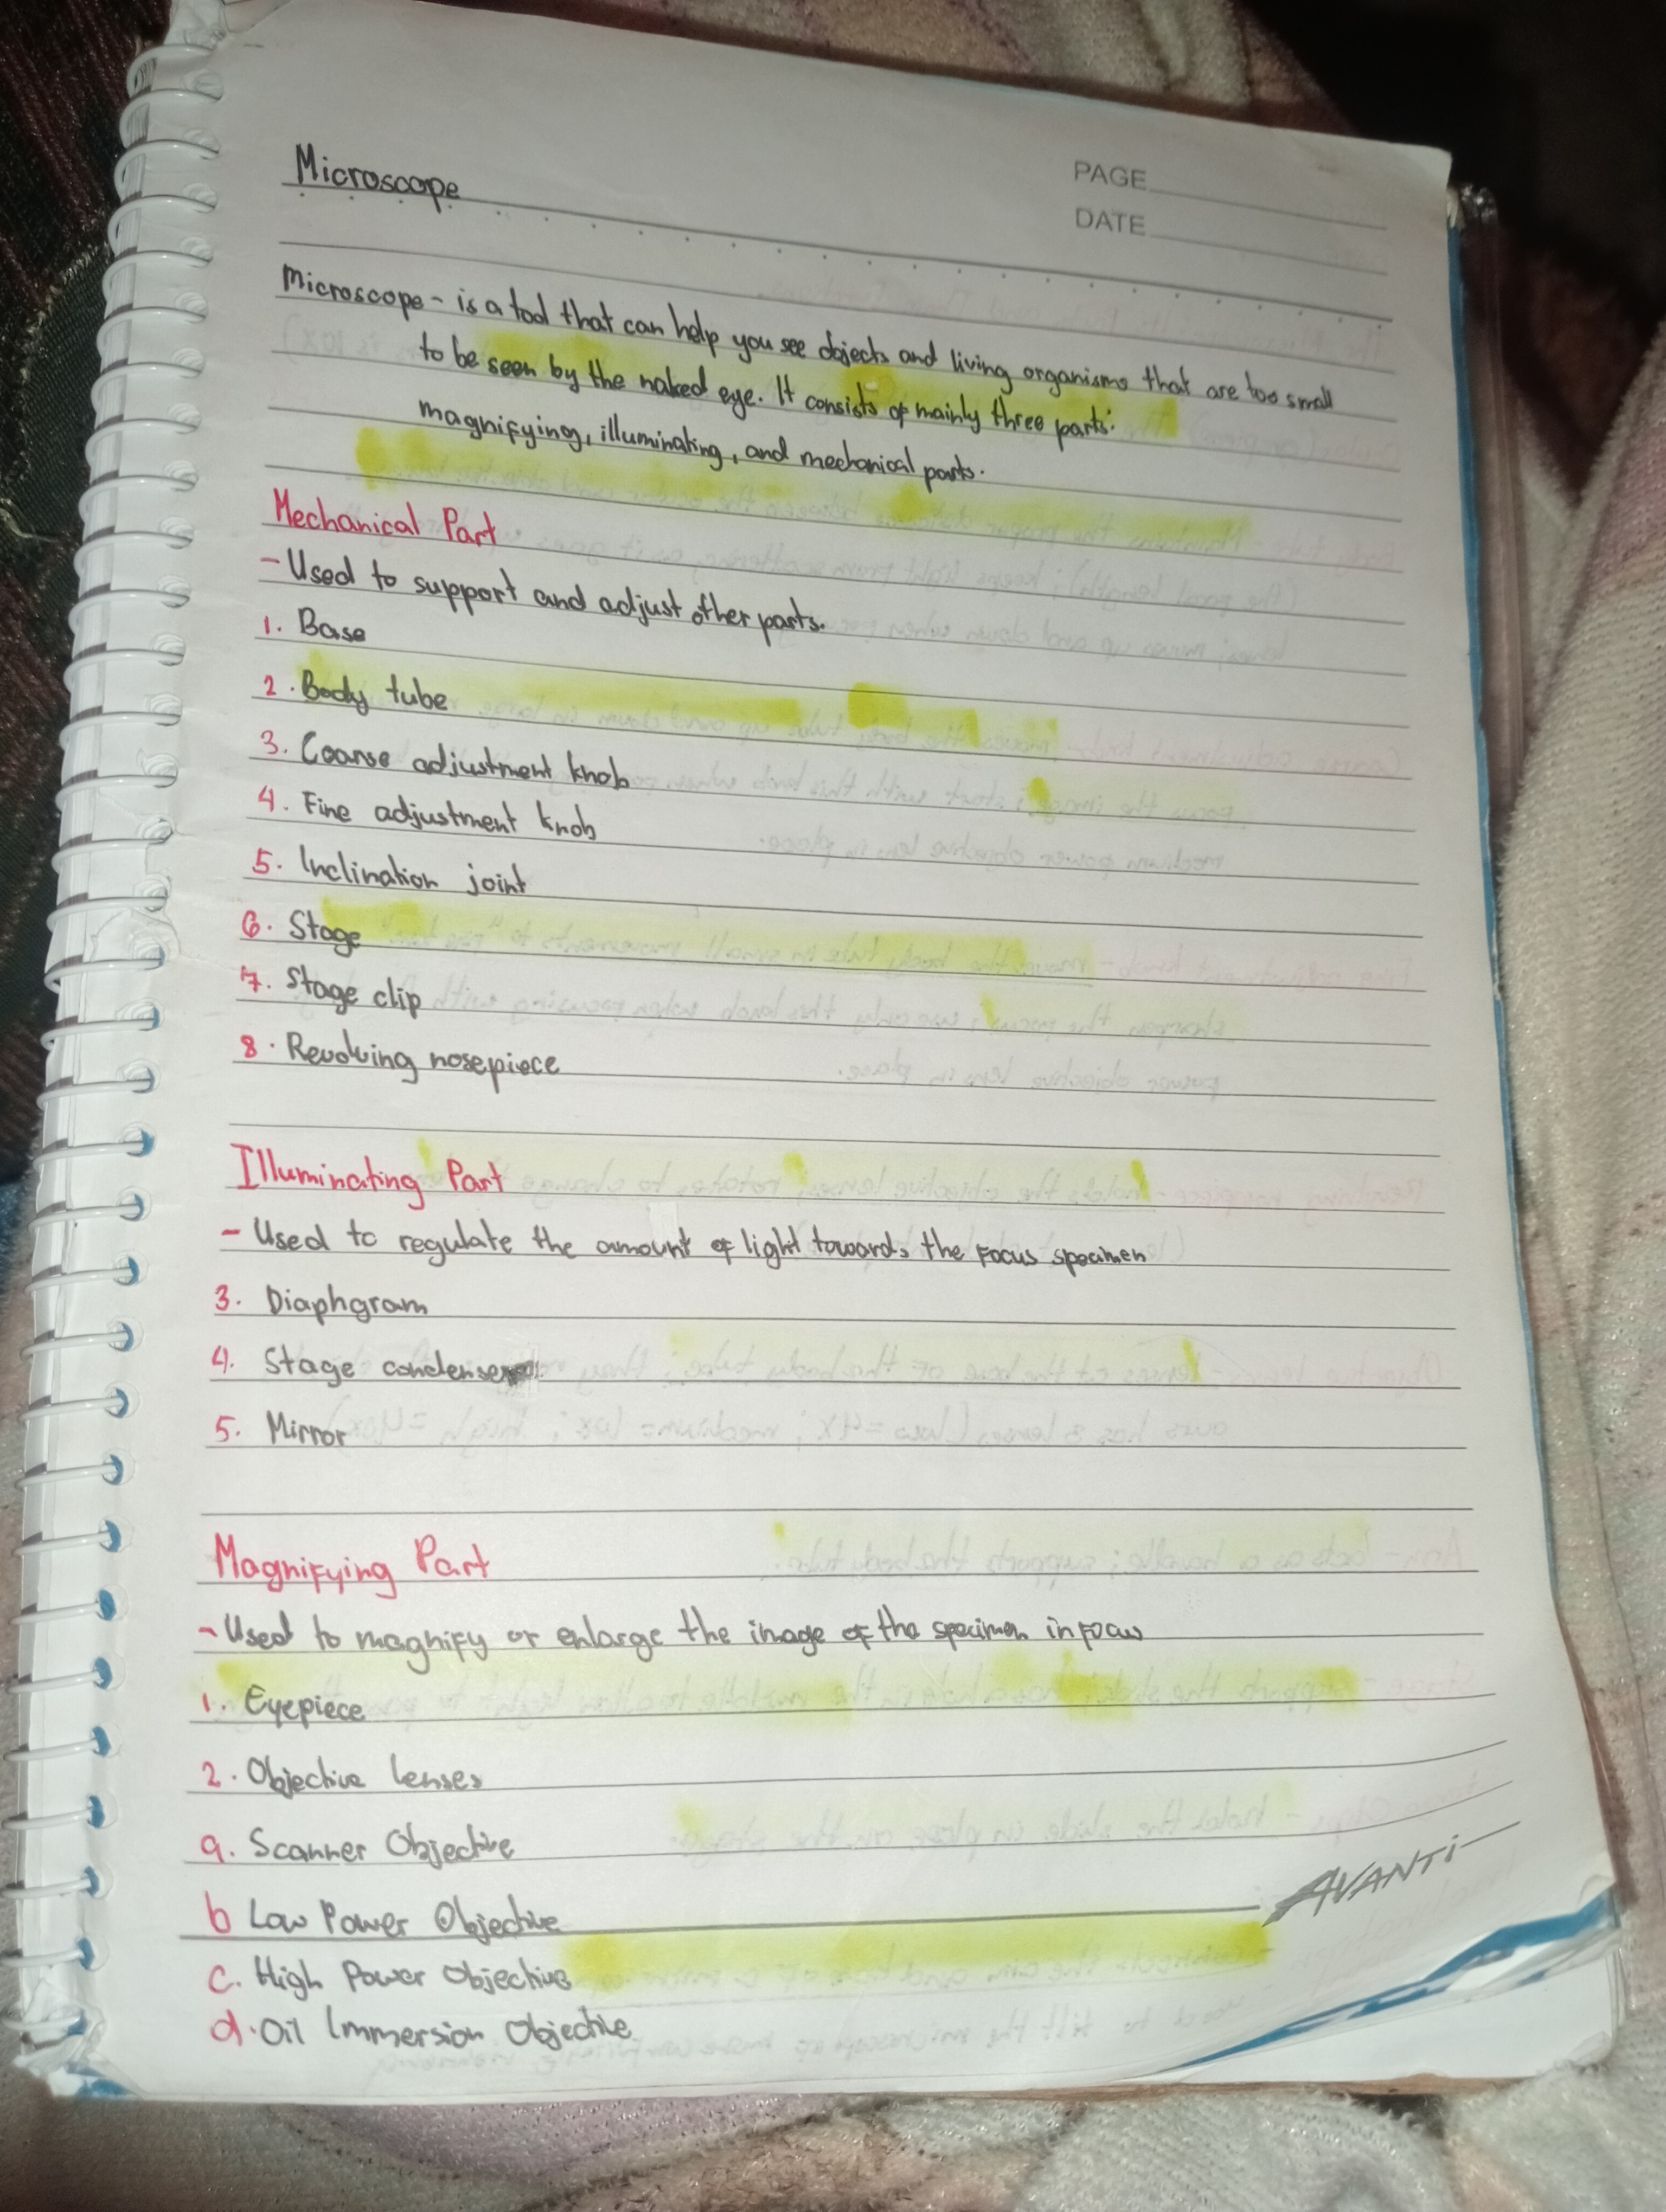 Microscope
PAGE
DATE
Microscope - is a tool that can help you see objects and living organisms that are too small
to be seen by the naked eye. It consists of mainly three parts:
magnifying, illuminating, and mechanical parts.
Mechanical Part
- Used to support and adjust other parts.
1. Base
2. Body tube
3. Coarse adjustment knob
4. Fine adjustment knob
5. Inclination joint
6. Stage
7. Stage clip
8. Revolving nosepiece
Illuminating Part
- Used to regulate the amount of light towards the focus specimen
3. Diaphgram
4. Stage condenser
5. Mirror
Magnifying Part
- Used to magnify or enlarge the image of the specimen in focus
1. Eyepiece
2. Objective lenses
a. Scanner Objective
b Low Power Objective
AVANTi
c. High Power Objective
d. Oil Immersion Objective